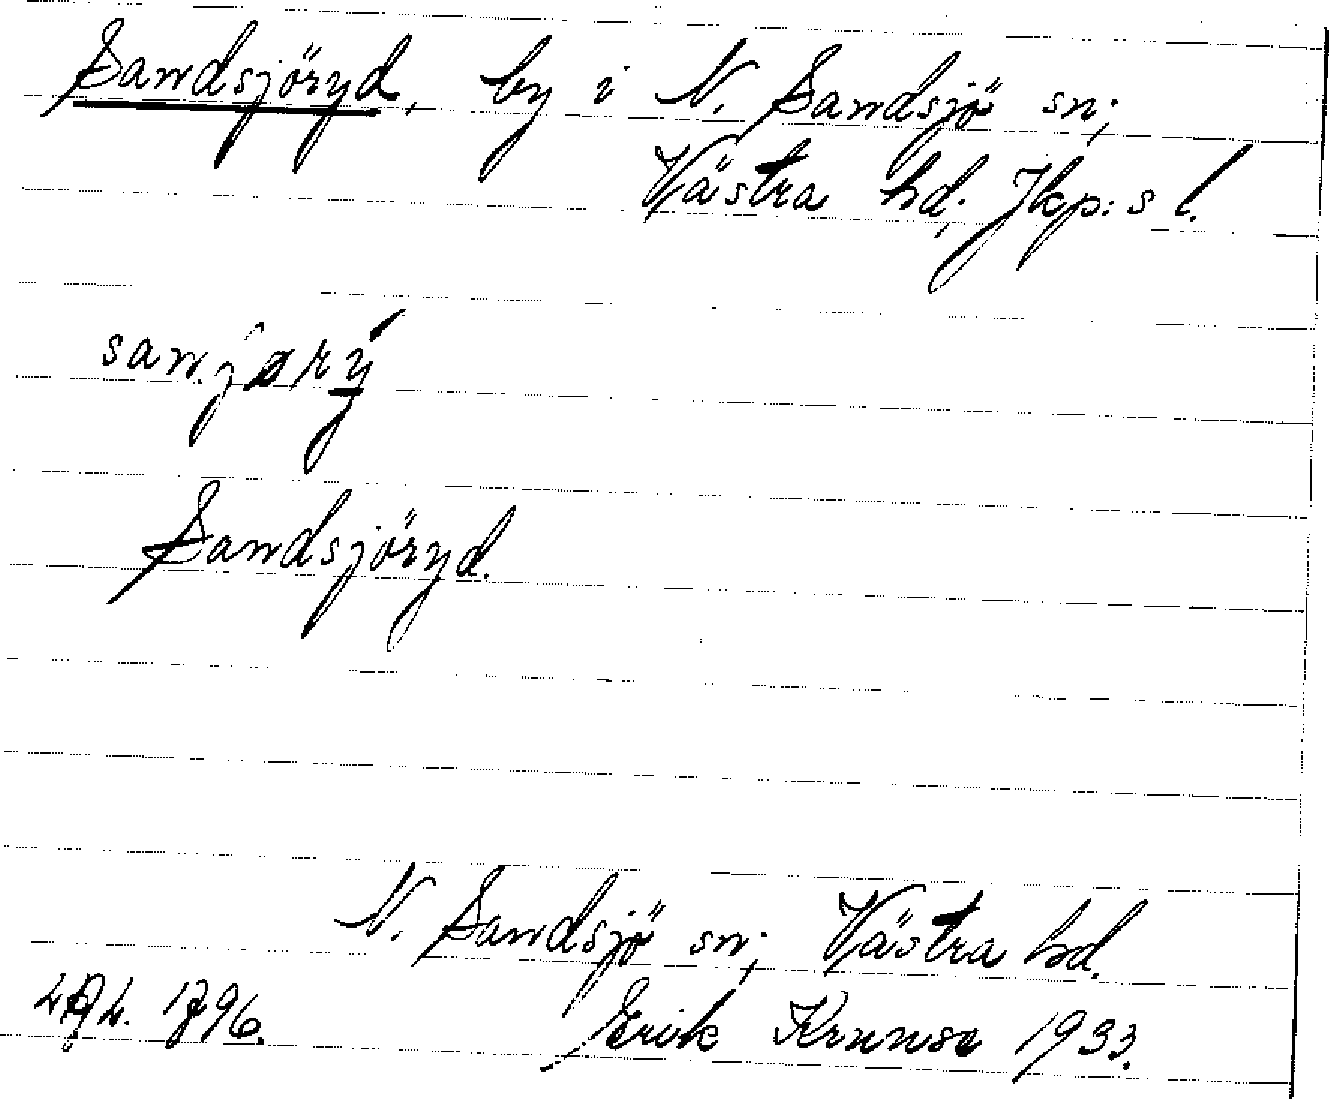 Sandsjöryd, by i N. Sandsjö sn;
Västra hd, Jkp:s l.
sanjørý
Sandsjöryd.
N. Sandsjö sn; Västra hd.
1796. Erik 1933.